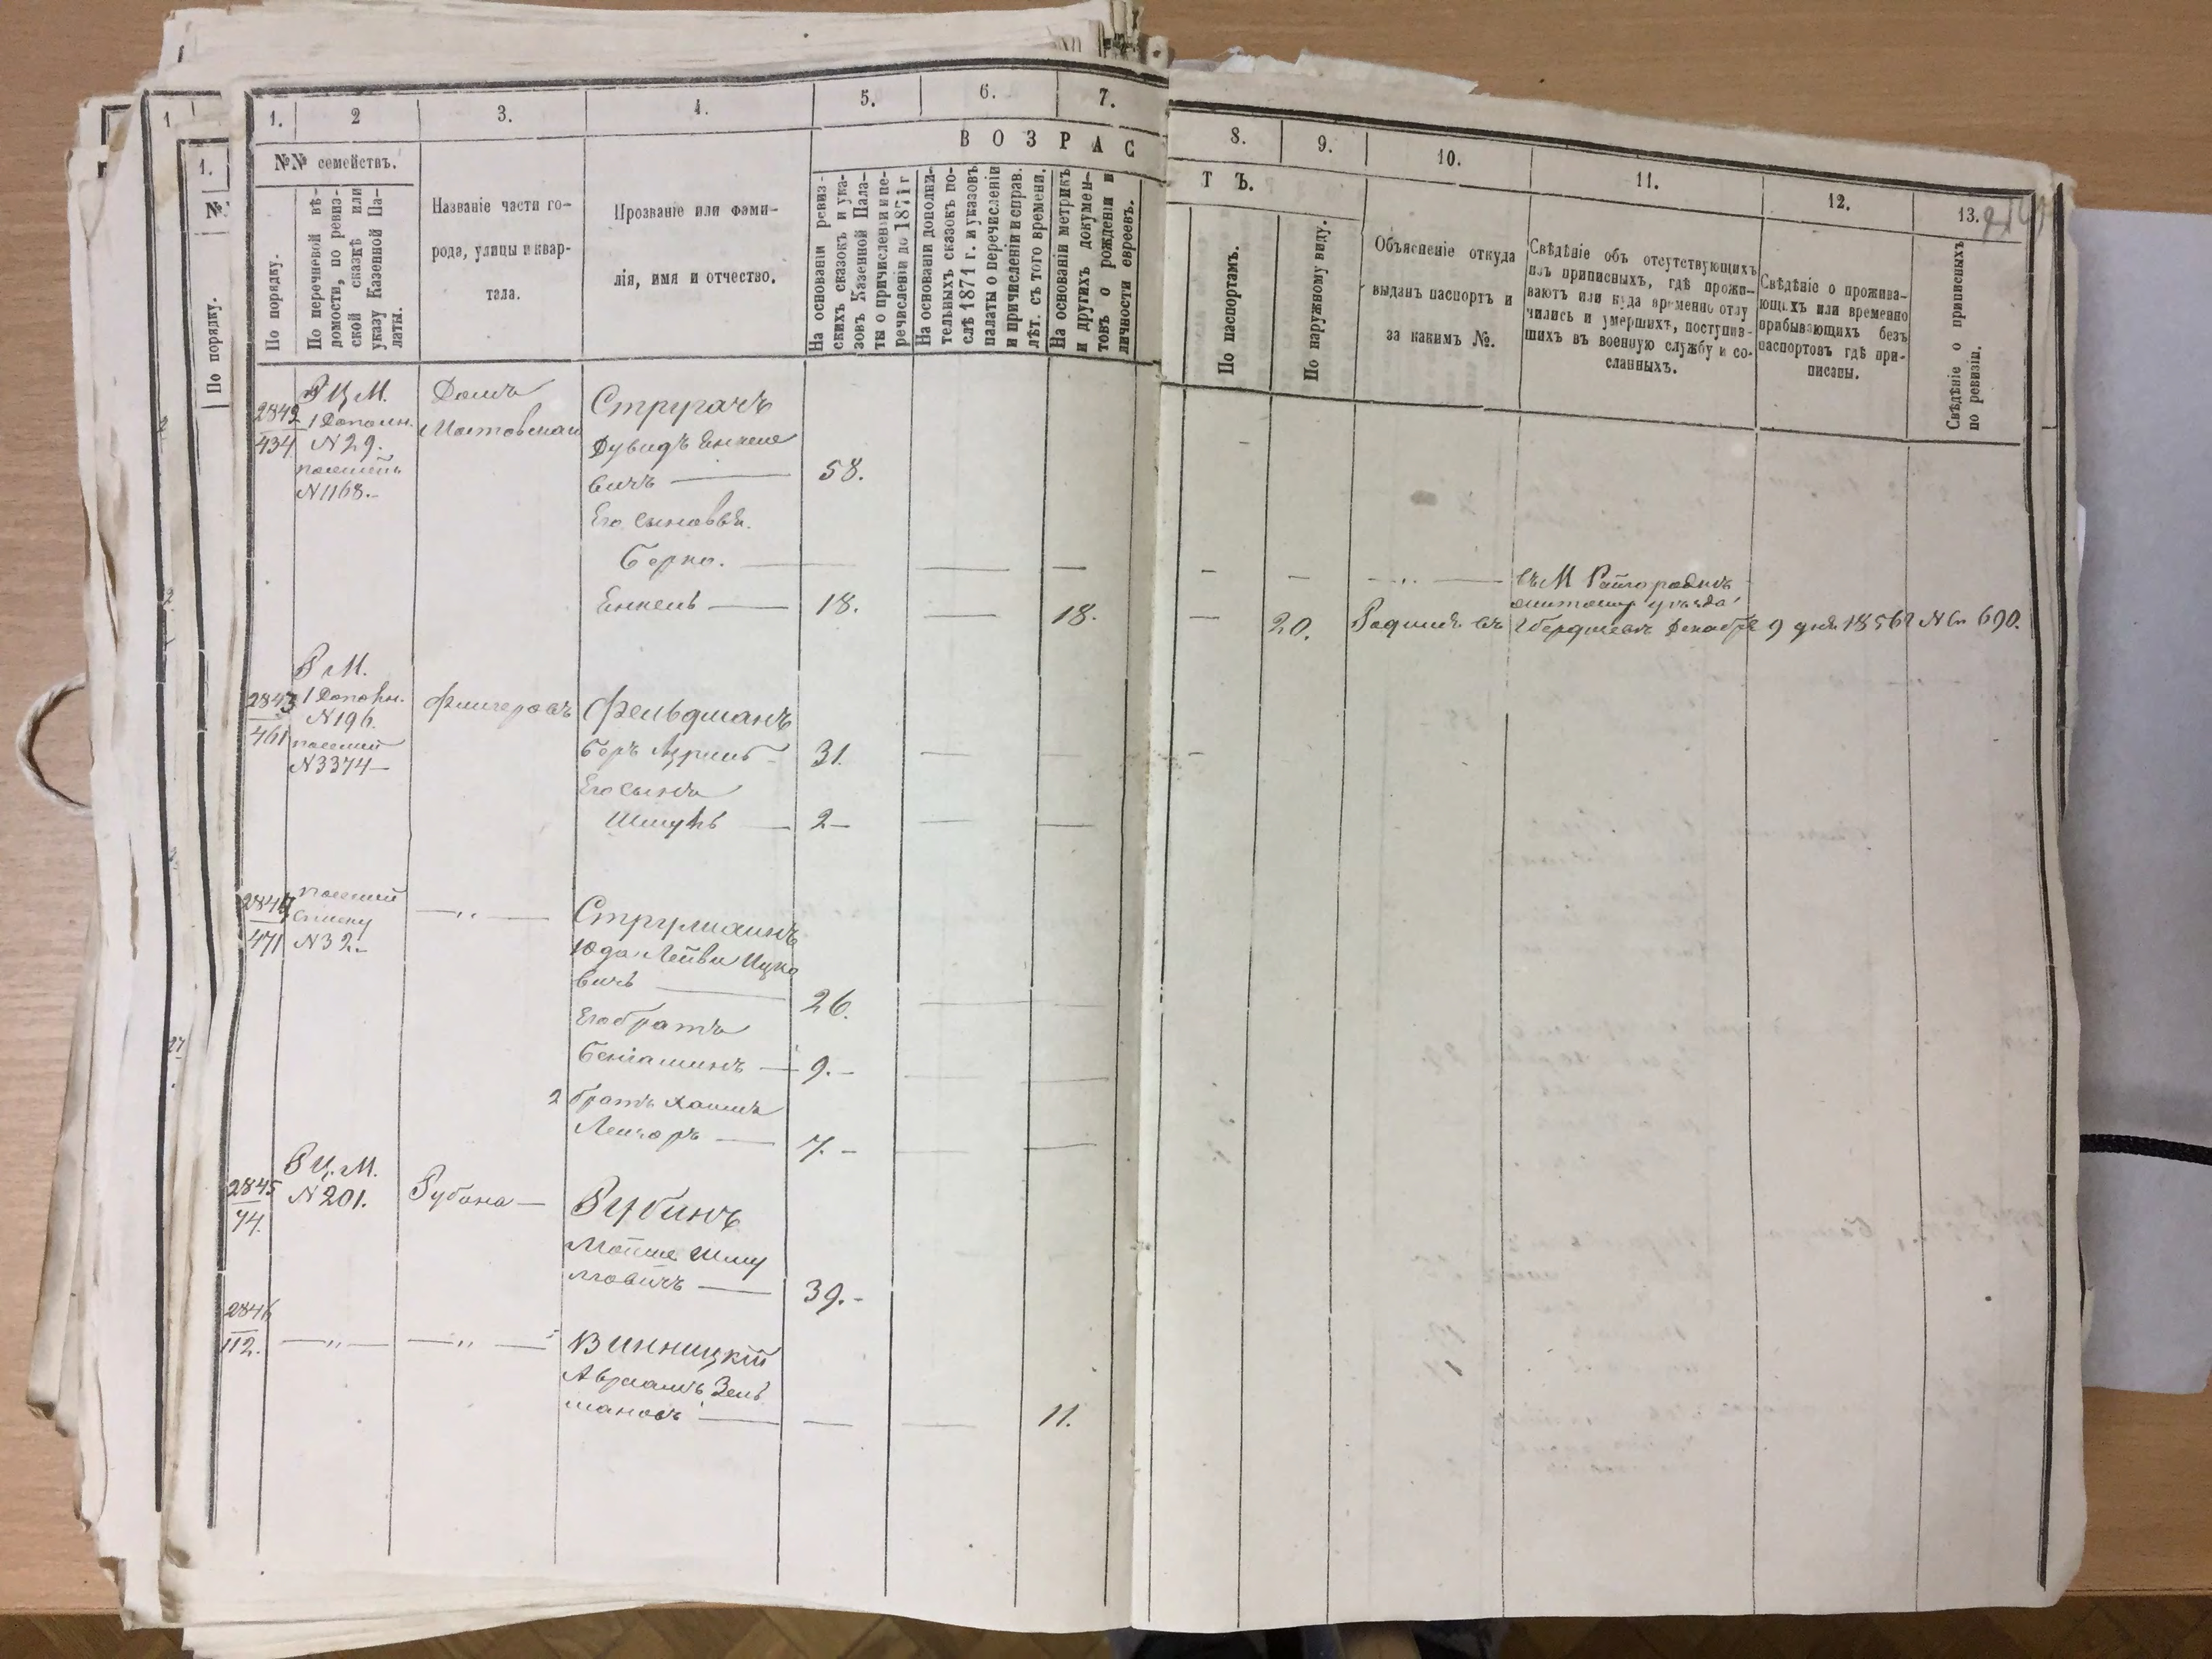 1.
2
3.
4.
5.
6.
7.
8.
9.
10.
11.
12.
13.
№№ семействъ.
В О З Р А С
Т Ъ.
По порядку.
По перечневой вѣ-
домости, по ревиз-
ской сказкѣ или
указу Казенной Па-
латы.
Названіе части го-
рода, улицы и квар-
тала.
Прозваніе или фами-
лія, имя и отчество.
На основаніи ревиз-
скихъ сказокъ и ука-
зовъ Казенной Пала-
ты о причисленіи и пе-
речисленіи до 1871 г
На основаніи дополни-
тельныхъ сказокъ по-
слѣ 1871 г. и указовъ
палаты о перечисленіи
и причисленіи и справ.
лѣт. съ того времени.
На основаніи метрикъ
и другихъ докумен-
товъ о рожденіи и
личности евреевъ.
По паспортамъ.
По наружному виду.
Объясненіе откуда
выданъ паспортъ и
за какимъ №.
Свѣдѣніе объ отсутствующихъ
изъ приписныхъ, гдѣ прожи-
ваютъ или куда временно отлу
чились и умершихъ, поступив-
шихъ въ военную службу и со-
сланныхъ.
Свѣдѣніе о прожива-
ющихъ или временно
прибывающихъ безъ
паспортовъ гдѣ при-
писаны.
Свѣдѣніе о приписныхъ
по ревизіи.
1
1.
№
По порядку.
2842
434
Р Ц М.
1 Дополн.
N 29.
N 1168.-
Домъ
Стругачъ
Дувидъ Енкеле
вичъ — 58.
Его сыновья.
Берко. — — — — — — „ — въ М Райгородкѣ
уѣзда
Енкель — 18. — 18. — 20. Родился въ г Бердичевѣ Декабря 9 дня 1856 г N 690.
2843
461
Р М.
1 Дополн.
N 196.
N 3374-
Фельдманъ
Беръ — 31. — — -
Его сынъ
Шмуль — 2- — —
2844
471
списку
N 32.-
— „ —
Струлманъ
Юда Лейба Ицко
вичъ — 26. — —
Его братъ
Беніаминъ — 9.- — —
2 братъ Хаимъ
— 7.- — —
2845
74.
Р Ц. М.
N 201.
Рубина —
Рубинъ
Мойше Шму
ловичъ — 39.-
2846
112.
— „ — — „ —
Винницкій
Авраамъ Зель
мановъ — — — 11.